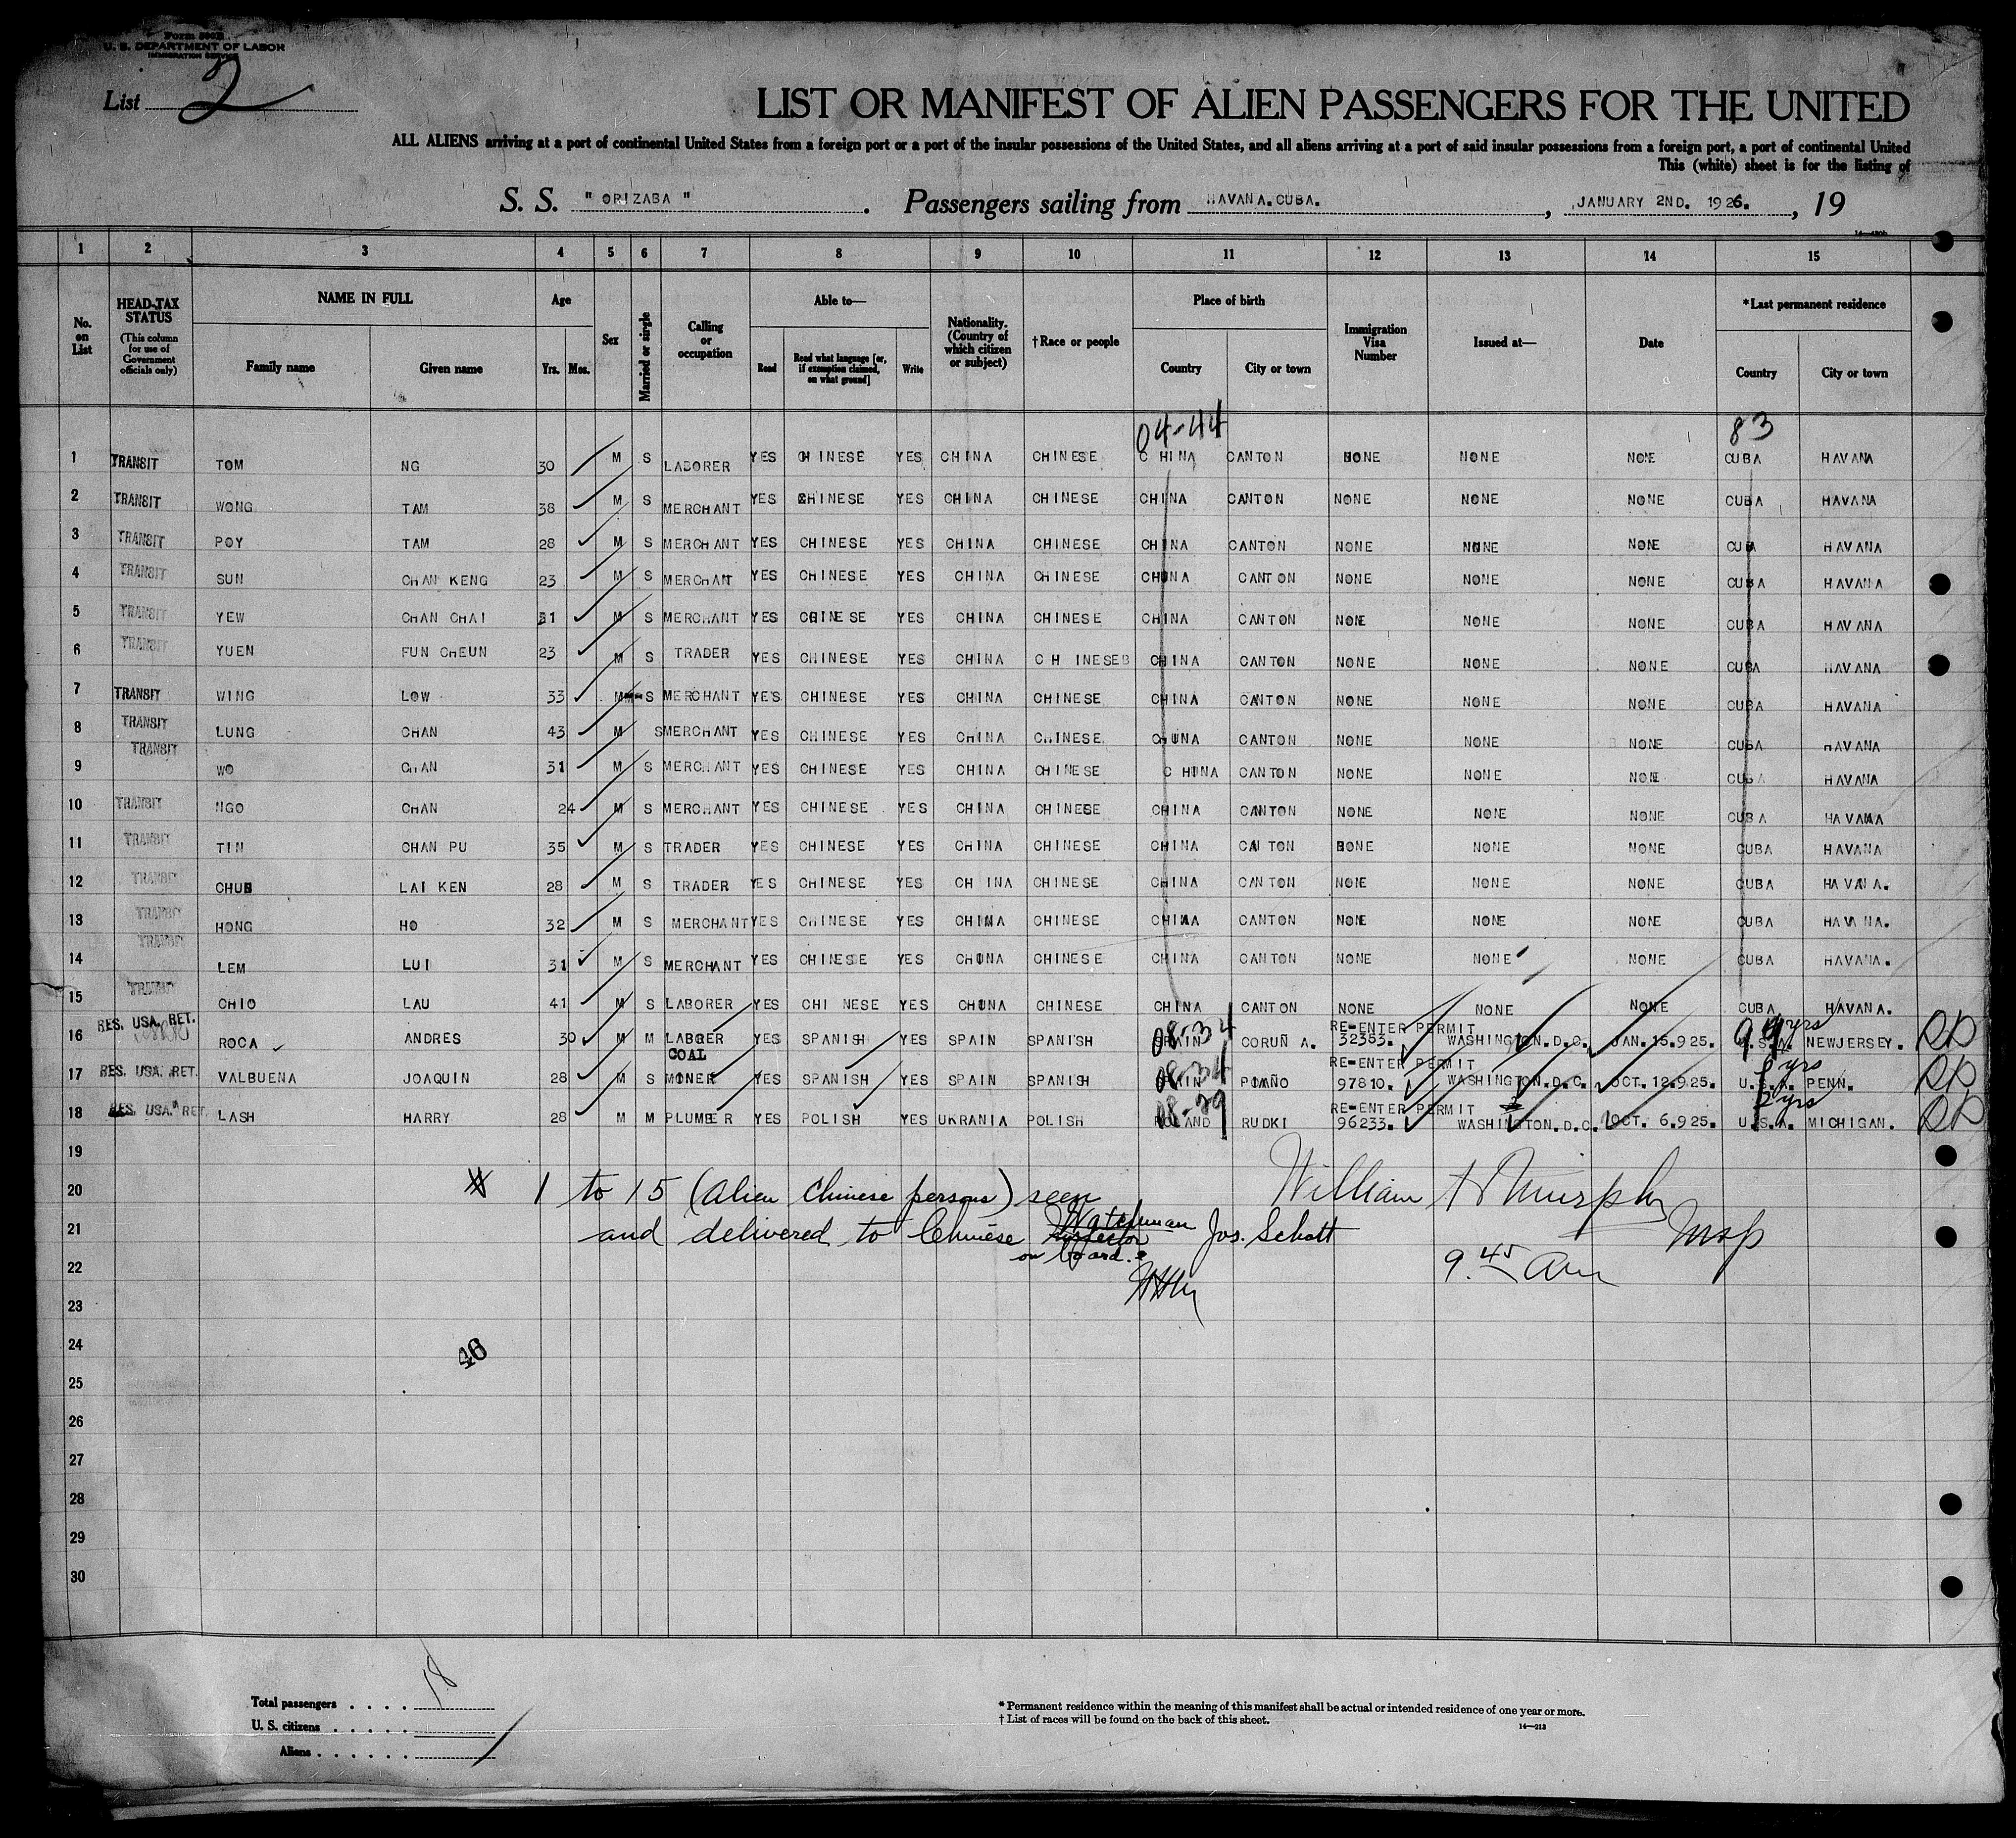 Form 500B
U. S. DEPARTMENT OF LABOR
IMMIGRATION SERVICE
List 2
LIST OR MANIFEST OF ALIEN PASSENGERS FOR THE UNITED
ALL ALIENS arriving at a port of continental United States from a foreign port or a port of the insular possessions of the United States, and all aliens arriving at a port of said insular possessions from a foreign port, a port of continental United
This (white) sheet is for the listing of
S. S. " ORIZABA " . Passengers sailing from HAVANA.CUBA. , JANUARY 2ND. 1926. , 19
1 2 3 4 5 6 7 8 9 10 11 12 13 14 15
No. on List
HEAD-TAX STATUS (This column for use of Government officials only)
NAME IN FULL Family name Given name
Age Yrs. Mos.
Sex
Married or single
Calling or occupation
Able to— Read Read what language [or, if exemption claimed, on what ground] Write
Nationality. (Country of which citizen or subject)
†Race or people
Place of birth Country City or town
Immigration Visa Number
Issued at—
Date
*Last permanent residence Country City or town
04-44 83
1 TRANSIT TOM NG 30 M S LABORER YES CHINESE YES CHINA CHINESE CHINA CANTON NONE NONE NONE CUBA HAVANA
2 TRANSIT WONG TAM 38 M S MERCHANT YES CHINESE YES CHINA CHINESE CHINA CANTON NONE NONE NONE CUBA HAVANA
3 TRANSIT POY TAM 28 M S MERCHANT YES CHINESE YES CHINA CHINESE CHINA CANTON NONE NONE NONE CUBA HAVANA
4 TRANSIT SUN CHAN KENG 23 M S MERCHANT YES CHINESE YES CHINA CHINESE CHINA CANTON NONE NONE NONE CUBA HAVANA
5 TRANSIT YEW CHAN CHAI 31 M S MERCHANT YES CHINESE YES CHINA CHINESE CHINA CANTON NONE NONE NONE CUBA HAVANA
6 TRANSIT YUEN FUN CHEUN 23 M S TRADER YES CHINESE YES CHINA CHINESE CHINA CANTON NONE NONE NONE CUBA HAVANA
7 TRANSIT WING LOW 33 M S MERCHANT YES CHINESE YES CHINA CHINESE CHINA CANTON NONE NONE NONE CUBA HAVANA
8 TRANSIT LUNG CHAN 43 M S MERCHANT YES CHINESE YES CHINA CHINESE CHINA CANTON NONE NONE NONE CUBA HAVANA
9 TRANSIT WO CHAN 31 M S MERCHANT YES CHINESE YES CHINA CHINESE CHINA CANTON NONE NONE NONE CUBA HAVANA
10 TRANSIT NGO CHAN 24 M S MERCHANT YES CHINESE YES CHINA CHINESE CHINA CANTON NONE NONE NONE CUBA HAVANA
11 TRANSIT TIN CHAN PU 35 M S TRADER YES CHINESE YES CHINA CHINESE CHINA CANTON NONE NONE NONE CUBA HAVANA
12 TRANSIT LAI KEN 28 M S TRADER YES CHINESE YES CHINA CHINESE CHINA CANTON NONE NONE NONE CUBA HAVANA.
13 TRANSIT HONG HO 32 M S MERCHANT YES CHINESE YES CHINA CHINESE CHINA CANTON NONE NONE NONE CUBA HAVANA.
14 TRANSIT LEM LUI 31 M S MERCHANT YES CHINESE YES CHINA CHINESE CHINA CANTON NONE NONE NONE CUBA HAVANA.
15 TRANSIT CHIO LAU 41 M S LABORER YES CHINESE YES CHINA CHINESE CHINA CANTON NONE NONE NONE CUBA HAVANA.
16 RES. USA. RET. ROCA ANDRES 30 M M LABORER YES SPANISH YES SPAIN SPANISH 08-34 SPAIN CORUÑA. RE-ENTER PERMIT 32353. WASHINGTON.D.C. JAN.15.925. 9 yrs U.S.A. NEWJERSEY. RR
17 RES. USA. RET. VALBUENA JOAQUIN 28 M S COAL MINER YES SPANISH YES SPAIN SPANISH 08-34 SPAIN RE-ENTER PERMIT 97810. WASHINGTON.D.C. OCT.12.925. yrs U.S.A. PENN. RR
18 RES. USA. RET. LASH HARRY 28 M M PLUMBER YES POLISH YES UKRANIA POLISH 08-29 POLAND RUDKI RE-ENTER PERMIT 96233. WASHINGTON.D.C. OCT. 6.925. 2 yrs U.S.A. MICHIGAN. RR
19
20 1 to 15 (Alien Chinese persons) seen William H Murphy
21 and delivered to Chinese Inspector Watchman Jos. Schott Insp
on board.
22 9.45 am
23
24
46
25
26
27
28
29
30
Total passengers . . . . 18
U. S. citizens . . . . . .
Aliens . . . . . .
* Permanent residence within the meaning of this manifest shall be actual or intended residence of one year or more.
† List of races will be found on the back of this sheet.
14—213